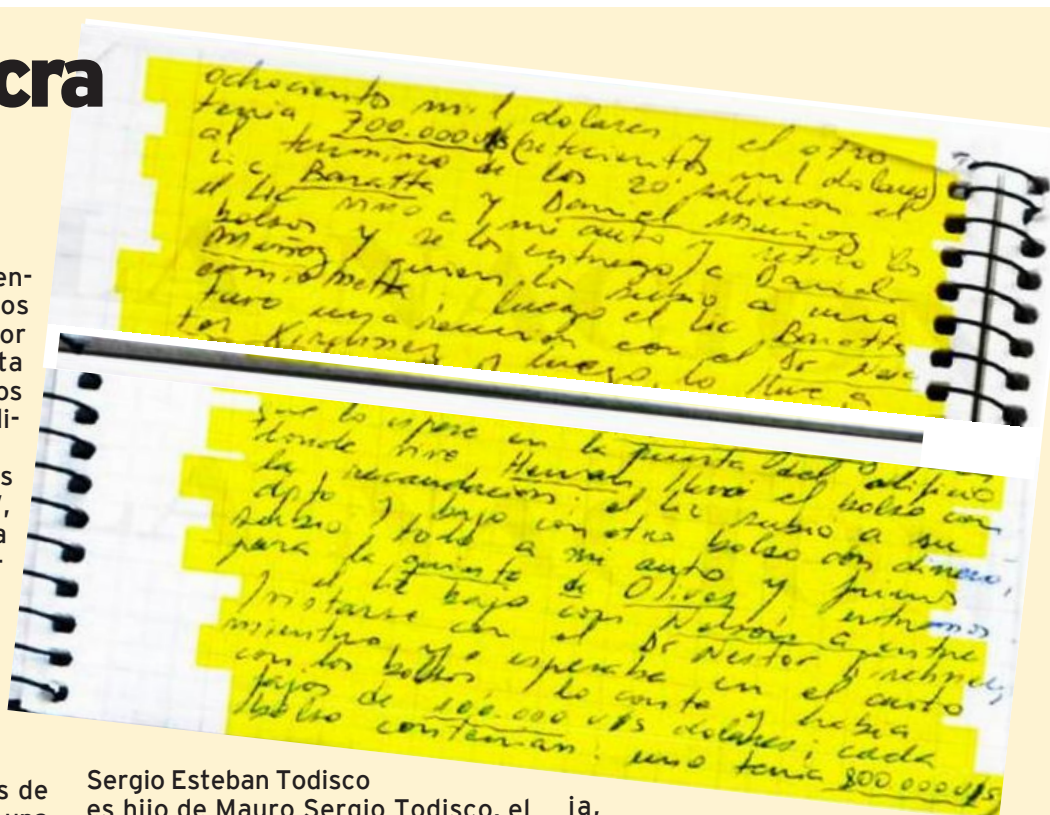 cra
ochociento mil dolares y el otro
tenia 700.000 U$S (setecientos mil dolares)
al termino de los 20' salieron el
Lic Baratta y Daniel Muñoz
el Lic vino a mi auto y retiro los
bolsos y se los entrego a Daniel
Muñoz y quien lo subio a una
camionetta; luego el Lic Baratta
tuvo una reunion con el Dr Nes
tor Kirchner y luego lo lleve a
que lo espere en la puerta del edificio
donde vive Hernan llevo el bolso con
la recaudacion: el Lic subio a su
dpto y bajo con otro bolso con dinero,
subio todo a mi auto y fuimos
para la quinta de Olivos, entramos
y el Lic bajo con Nelson a entre
vistarse con el Dr Nestor
mientras yo esperaba en el auto
con los bolsos, lo conte y habia
fajos de 100.000 U$S dolares; cada
bolso contenian: uno tenia 800.000 U$S
en-
os
or
ta
os
di-
s
,
a
-
s de
una
Sergio Esteban Todisco
es hijo de Mauro Sergio Todisco, el
ja,